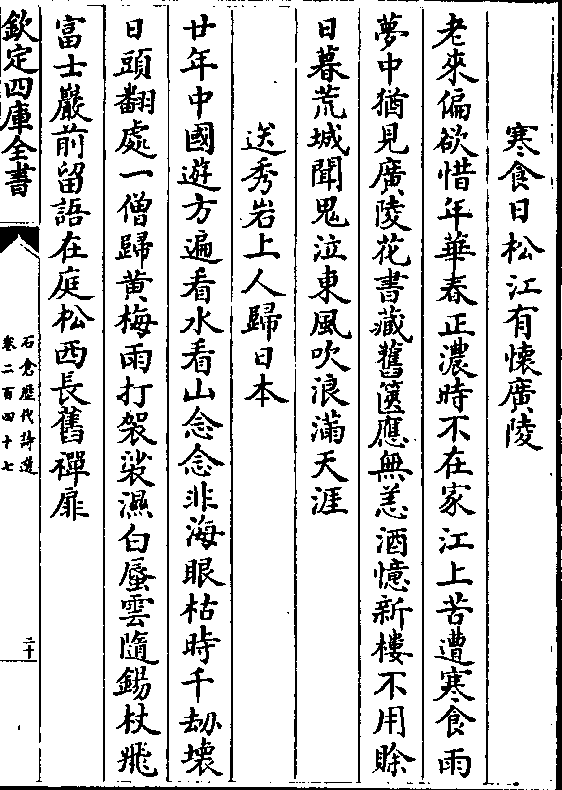 寒食日松江有懷廣陵
老來偏欲惜年華春正濃時不在家江上苦遭寒食雨
夢中猶見廣陵花書藏舊篋應無恙酒憶新樓不用賒
日暮荒城聞鬼泣東風吹浪滿天涯
送秀岩上人歸日本
廿年中國遊方遍看水看山念念非海眼枯時千劫壊
日頭翻處一僧歸黄梅雨打袈裟濕白蜃雲隨錫杖飛
富士巖前留語在庭松西長舊禪扉
欽定四庫全書
石倉歴代詩選
卷二百四十七
二十